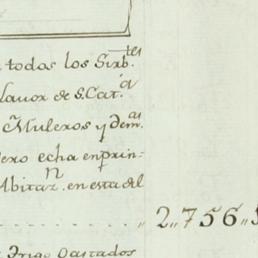 todos los Sirb.tes
lavor de S. Cat.a
Muleros y dem.as
ero echa en prin-
Abitaz.n en esta del
2,,756,,
Trigo Gastados